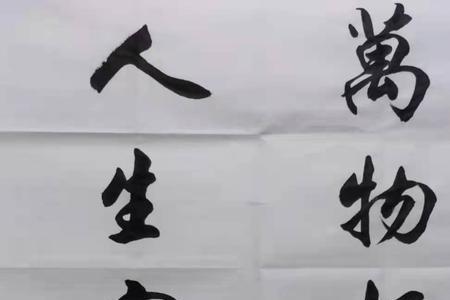 萬物
人生